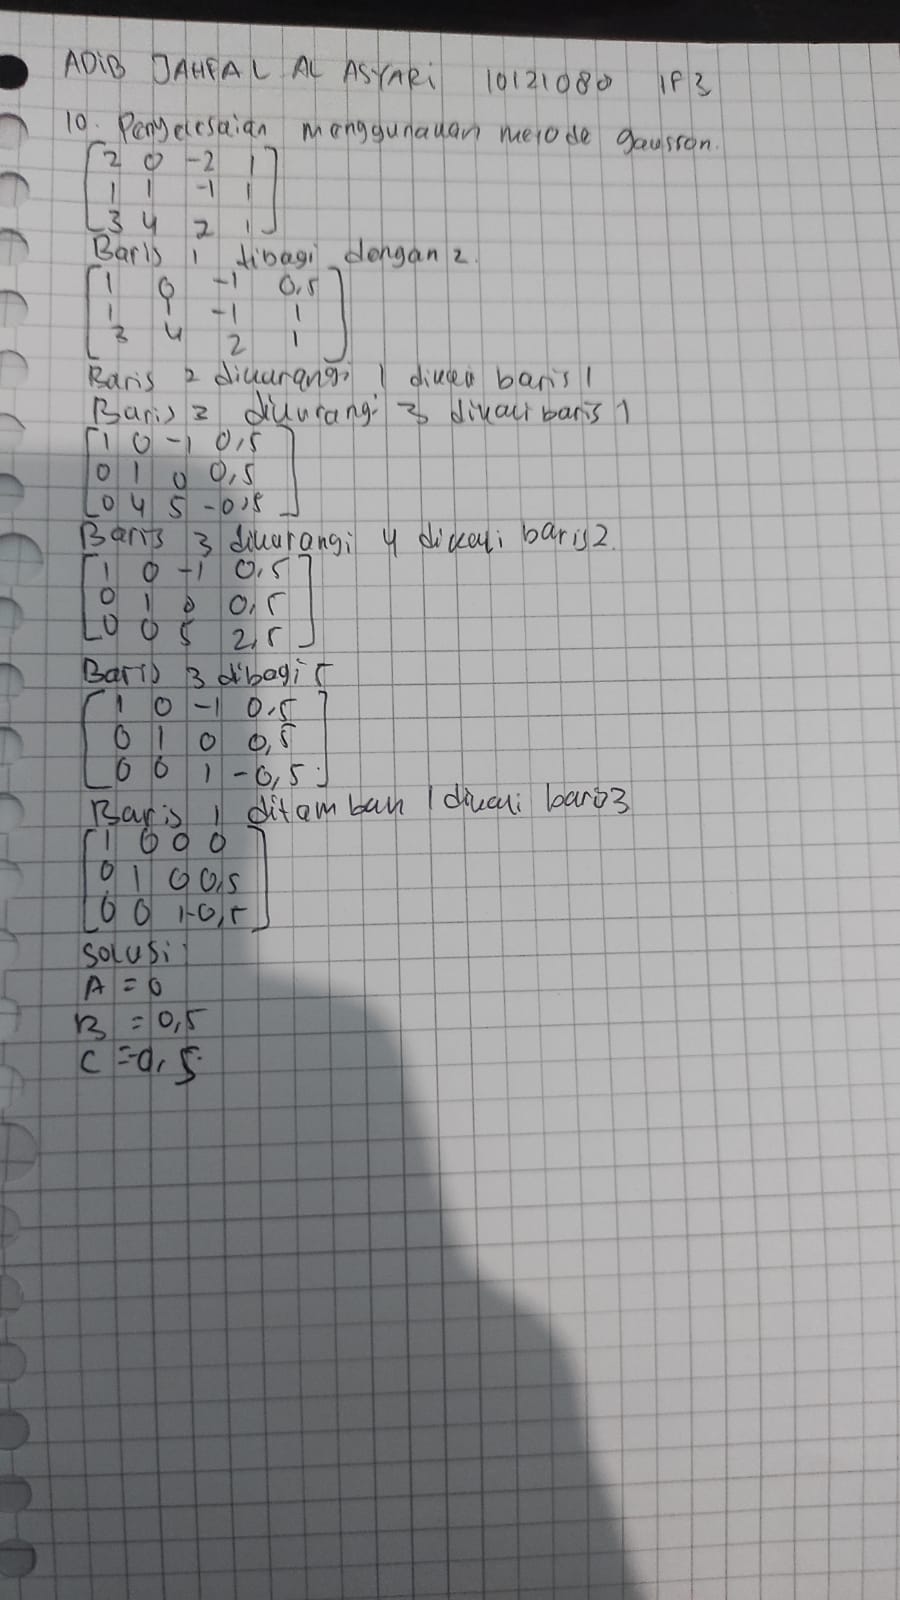 ADIB JAHFAL AL ASYARI 10121080 IF3
10. Penyelesaian menggunakan metode gausson.
2 0 -2 1
1 1 -1 1
3 4 2 1
Baris 1 dibagi dengan 2.
1 0 -1 0,5
1 1 -1 1
3 4 2 1
Baris 2 dikurangi 1 dikali baris 1
Baris 3 dikurangi 3 dikali baris 1
1 0 -1 0,5
0 1 0 0,5
0 4 5 -0,5
Baris 3 dikurangi 4 dikali baris 2.
1 0 -1 0,5
0 1 0 0,5
0 0 5 2,5
Baris 3 dibagi 5
1 0 -1 0,5
0 1 0 0,5
0 0 1 -0,5
Baris 1 ditambah 1 dikali baris 3
1 0 0 0
0 1 0 0,5
0 0 1 -0,5
Solusi:
A = 0
B = 0,5
C = -0,5